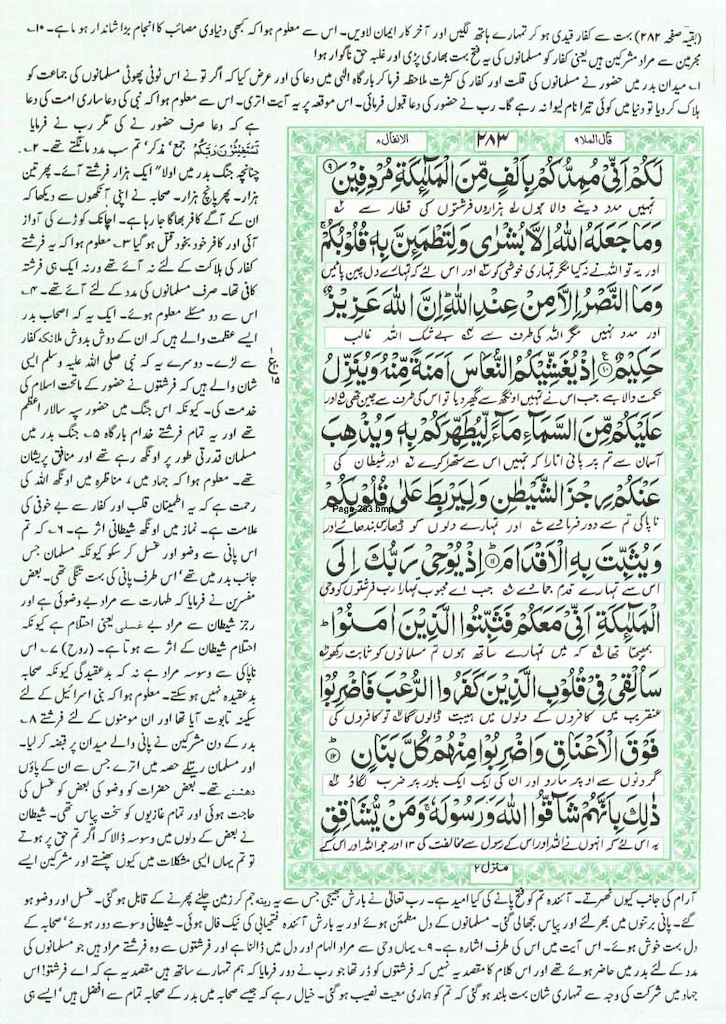 (بقیہ صفحہ ۲۸۲) بہت سے کفار قیدی ہو کر تمہارے ہاتھ لگیں اور آخر کار ایمان لاویں۔ اس سے معلوم ہوا کہ کبھی دنیاوی مصائب کا انجام بڑا شاندار ہوتا ہے۔ ۱۰۔
مجرمین سے مراد مشرکین ہیں یعنی کفار کو مسلمانوں کی یہ فتح بہت بھاری پڑی اور غلبہ حق ناگوار ہوا
۱۔ میدان بدر میں حضور نے مسلمانوں کی قلت اور کفار کی کثرت ملاحظہ فرما کر بارگاہ الٰہی میں دعا کی اور عرض کیا کہ اگر تو نے اس ٹوٹی پھوٹی مسلمانوں کی جماعت کو
ہلاک کر دیا تو دنیا میں کوئی تیرا نام لیوا نہ رہے گا۔ رب نے حضور کی دعا قبول فرمائی۔ اس موقعہ پر یہ آیت اتری۔ اس سے معلوم ہوا کہ نبی کی دعا ساری امت کی دعا
ہے کہ دعا صرف حضور نے کی مگر رب نے فرمایا
تَسْتَغِيْثُوْنَ رَبَّكُمْ جمع مذکر، تم سب مدد مانگتے تھے۔ ۲۔
چنانچہ جنگ بدر میں اولاً ایک ہزار فرشتے آئے۔ پھر تین
ہزار۔ پھر پانچ ہزار۔ صحابہ نے اپنی آنکھوں سے دیکھا کہ
ان کے آگے کافر بھاگا جا رہا ہے۔ اچانک کوڑے کی آواز
آئی اور کافر خود بخود قتل ہو گیا ۳۔ معلوم ہوا کہ یہ فرشتے
کفار کی ہلاکت کے لئے نہ آئے تھے ورنہ ایک ہی فرشتہ
کافی تھا۔ صرف مسلمانوں کی مدد کے لئے آئے تھے۔ ۴۔
اس سے دو مسئلے معلوم ہوئے۔ ایک یہ کہ اصحاب بدر
ایسے عظمت والے ہیں کہ ان کے دوش بدوش ملائکہ کفار
سے لڑے۔ دوسرے یہ کہ نبی صلی اللہ علیہ وسلم ایسی
شان والے ہیں کہ فرشتوں نے حضور کے ماتحت اسلام کی
خدمت کی۔ کیونکہ اس جنگ میں حضور سپہ سالار اعظم
تھے اور یہ تمام فرشتے خدام بارگاہ ۵۔ جنگ بدر میں
مسلمان قدرتی طور پر اونگھ رہے تھے اور منافق پریشان
تھے۔ معلوم ہوا کہ جہاد میں، مناظرہ میں اونگھ اللہ کی
رحمت ہے کہ یہ اطمینان قلب اور کفار سے بے خوفی کی
علامت ہے۔ نماز میں اونگھ شیطانی اثر ہے۔ ۶۔ کہ تم
اس پانی سے وضو اور غسل کر سکو کیونکہ مسلمان جس
جانب بدر میں تھے، اس طرف پانی کی بہت تنگی تھی۔ بعض
مفسرین نے فرمایا کہ طہارت سے مراد بے وضوئی ہے اور
رجز شیطان سے مراد بے غسلی یعنی احتلام ہے کیونکہ
احتلام شیطان کے اثر سے ہوتا ہے۔ (روح) ۷۔ اس
ناپاکی سے وسوسہ مراد ہے نہ کہ بدعقیدگی کیونکہ صحابہ
بدعقیدہ نہیں ہو سکتے۔ معلوم ہوا کہ بنی اسرائیل کے لئے
سکینہ تابوت آیا تھا اور ان مومنوں کے لئے فرشتے ۸۔
بدر کے دن مشرکین نے پانی والے میدان پر قبضہ کر لیا۔
اور مسلمان ریتلے حصہ میں اترے جس سے ان کے پاؤں
دھنستے تھے۔ بعض حضرات کو وضو کی بعض کو غسل کی
حاجت ہوئی اور تمام غازیوں کو سخت پیاس تھی۔ شیطان
نے بعض کے دلوں میں وسوسہ ڈالا کہ اگر تم حق پر ہوتے
تو تم یہاں ایسی مشکلات میں کیوں پھنستے اور مشرکین ایسے
قال الملا ۹
۲۸۳
الانفال ۸
لَكُمْ اَنِّيْ مُمِدُّكُمْ بِاَلْفٍ مِّنَ الْمَلٰٓئِكَةِ مُرْدِفِيْنَ ۹
تمہیں مدد دینے والا ہوں ہزاروں فرشتوں کی قطار سے
وَمَا جَعَلَهُ اللّٰهُ اِلَّا بُشْرٰى وَلِتَطْمَئِنَّ بِهٖ قُلُوْبُكُمْ
اور یہ تو اللہ نے نہ کیا مگر تمہاری خوشی کو اور اس لئے کہ تمہارے دل چین پائیں
وَمَا النَّصْرُ اِلَّا مِنْ عِنْدِ اللّٰهِ اِنَّ اللّٰهَ عَزِيْزٌ
اور مدد نہیں مگر اللہ کی طرف سے بے شک اللہ غالب
حَكِيْمٌ ۱۰ اِذْ يُغَشِّيْكُمُ النُّعَاسَ اَمَنَةً مِّنْهُ وَيُنَزِّلُ
حکمت والا ہے جب اس نے تمہیں اونگھ سے گھیر دیا تو اس کی طرف سے چین تھی اور
عَلَيْكُمْ مِّنَ السَّمَآءِ مَآءً لِّيُطَهِّرَكُمْ بِهٖ وَيُذْهِبَ
آسمان سے تم پر پانی اتارا کہ تمہیں اس سے ستھرا کر دے اور شیطان کی
عَنْكُمْ رِجْزَ الشَّيْطٰنِ وَلِيَرْبِطَ عَلٰى قُلُوْبِكُمْ
Page-283.bmp
ناپاکی تم سے دور فرما دے اور تمہارے دلوں کو ڈھارس بندھائے اور
وَيُثَبِّتَ بِهِ الْاَقْدَامَ ۱۱ اِذْ يُوْحِيْ رَبُّكَ اِلَى
اس سے تمہارے قدم جما دے جب اے محبوب تمہارا رب فرشتوں کو وحی
الْمَلٰٓئِكَةِ اَنِّيْ مَعَكُمْ فَثَبِّتُوا الَّذِيْنَ اٰمَنُوْا
بھیجتا تھا کہ میں تمہارے ساتھ ہوں تم مسلمانوں کو ثابت رکھو
سَاُلْقِيْ فِيْ قُلُوْبِ الَّذِيْنَ كَفَرُوا الرُّعْبَ فَاضْرِبُوْا
عنقریب میں کافروں کے دلوں میں ہیبت ڈالوں گا تو کافروں کی
فَوْقَ الْاَعْنَاقِ وَاضْرِبُوْا مِنْهُمْ كُلَّ بَنَانٍ ۱۲
گردنوں سے اوپر مارو اور ان کی ایک ایک پور پر ضرب لگاؤ
ذٰلِكَ بِاَنَّهُمْ شَآقُّوا اللّٰهَ وَرَسُوْلَهٗ وَمَنْ يُّشَاقِقِ
یہ اس لئے کہ انہوں نے اللہ اور اس کے رسول سے مخالفت کی ۱۳ اور جو اللہ اور اس کے
منزل ۲
ع ۱۵
آرام کی جانب کیوں ٹھہرتے۔ آئندہ تم کو فتح پانے کی کیا امید ہے۔ رب تعالیٰ نے بارش بھیجی جس سے یہ ریتہ جم کر زمین چلنے پھرنے کے قابل ہو گئی۔ غسل اور وضو ہو
گئے۔ پانی برتنوں میں بھر لئے اور پیاس بجھالی گئی۔ مسلمانوں کے دل مطمئن ہوئے اور یہ بارش آئندہ فتحیابی کی نیک فال ہوئی۔ شیطانی وسوسے دور ہوئے، صحابہ کے
دل بہت خوش ہوئے۔ اس آیت میں اس کی طرف اشارہ ہے۔ ۹۔ یہاں وحی سے مراد الہام اور دل میں ڈالنا ہے اور فرشتوں سے وہ فرشتے مراد ہیں جو مسلمانوں کی
مدد کے لئے بدر میں حاضر ہوئے تھے اور اس کلام کا مقصد یہ نہیں کہ فرشتوں کو ڈر تھا جو رب نے دور فرمایا کہ ہم تمہارے ساتھ ہیں مقصد یہ ہے کہ اے فرشتو! اس
جہاد میں شرکت کی وجہ سے تمہاری شان بہت بلند ہو گئی کہ تم کو ہماری معیت نصیب ہو گئی۔ خیال رہے کہ جیسے صحابہ میں بدر کے صحابہ تمام سے افضل ہیں، ایسے ہی